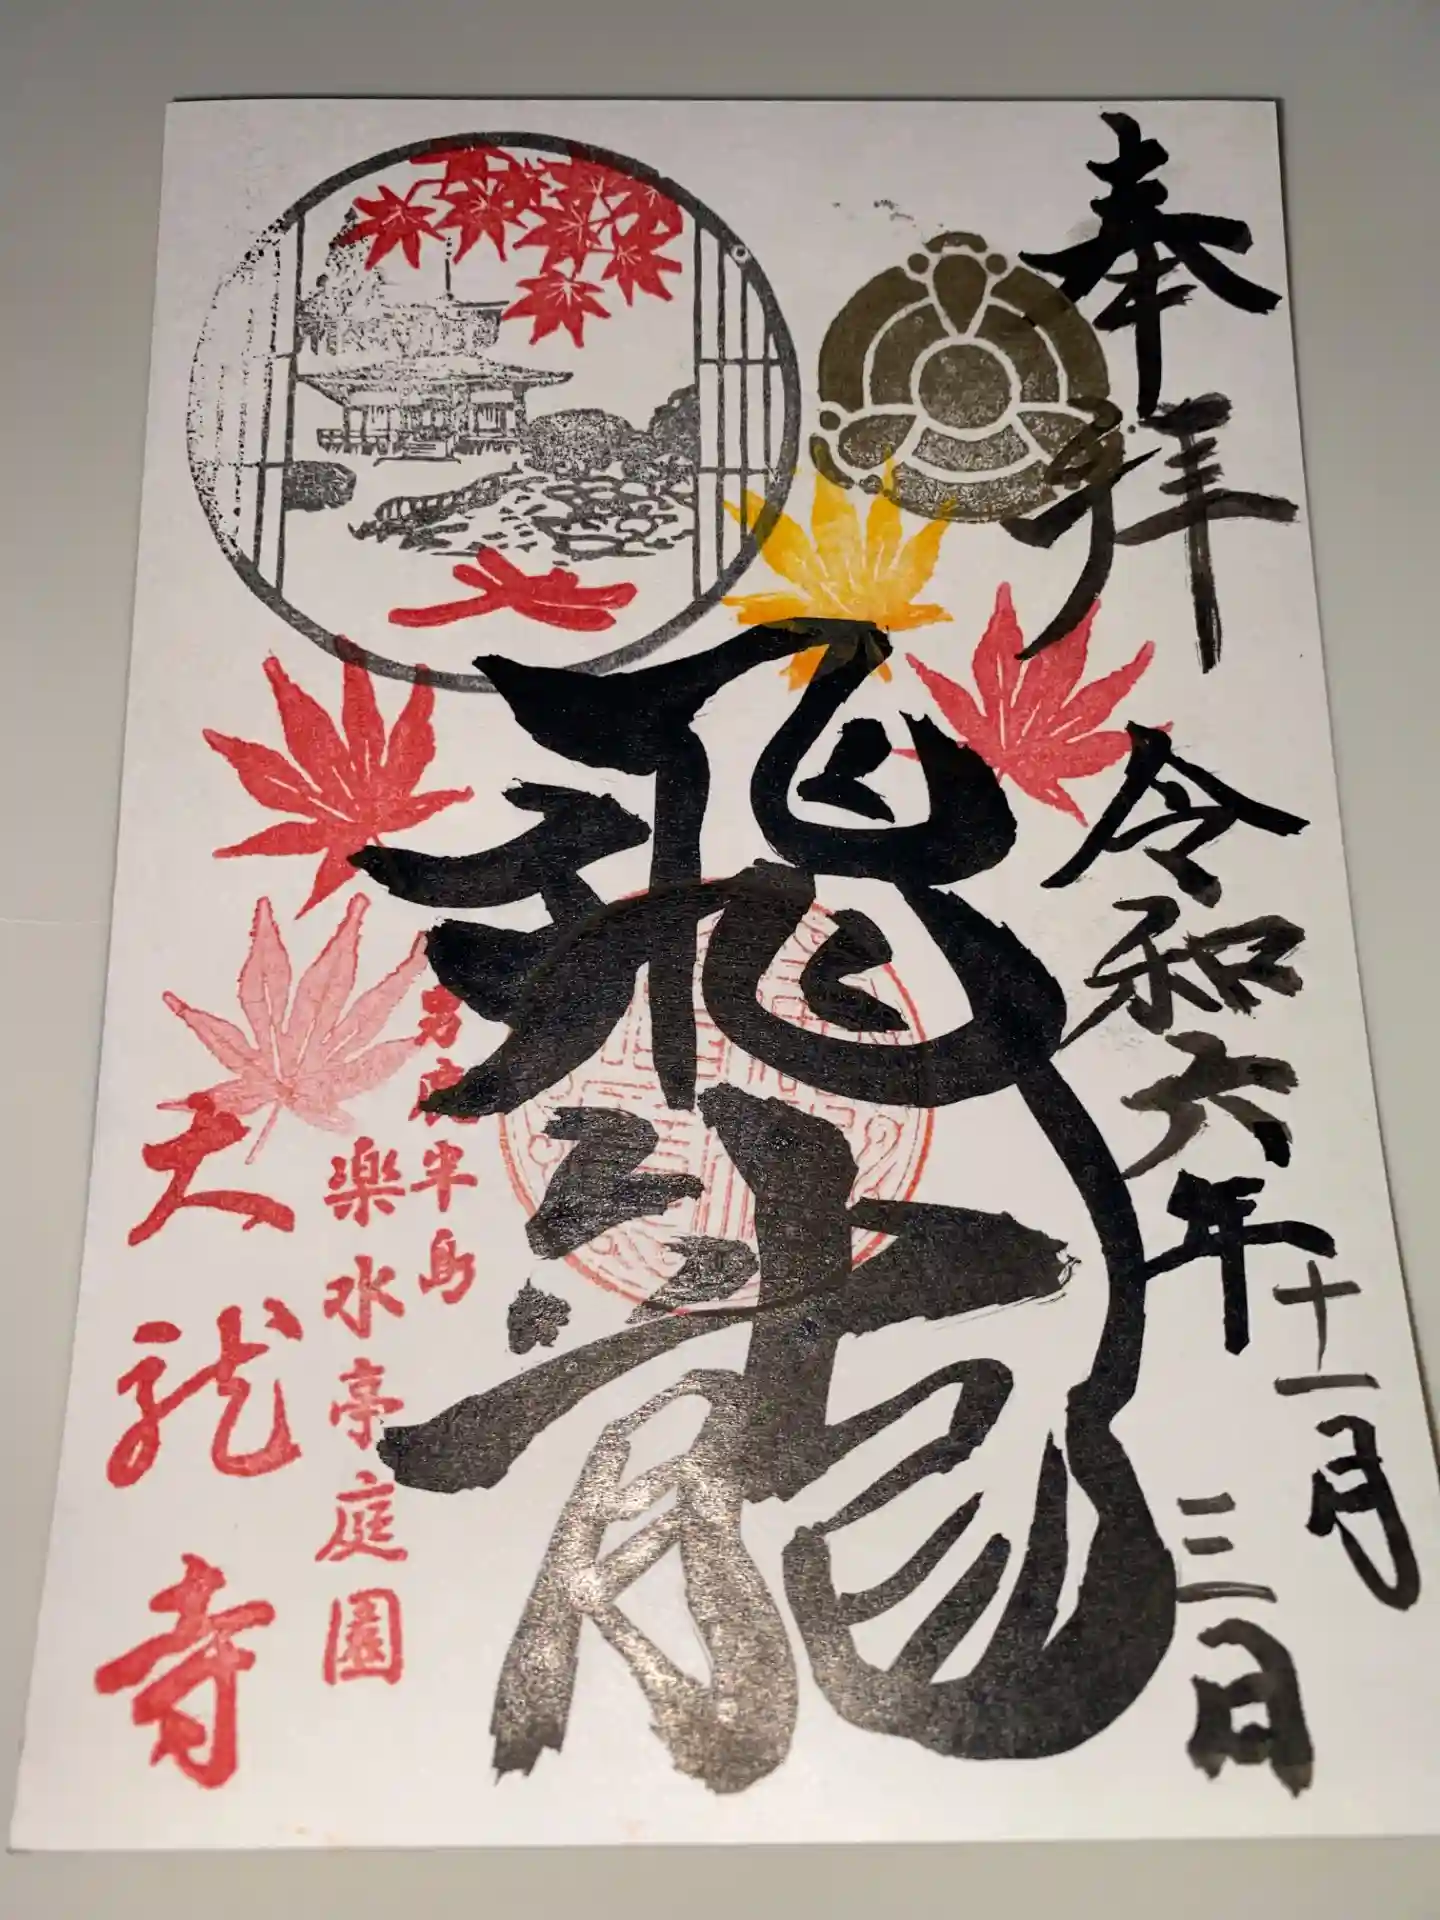 奉拝
令和六年
十一月
三日
飛龍
男鹿半島
楽水亭庭園
大龍寺